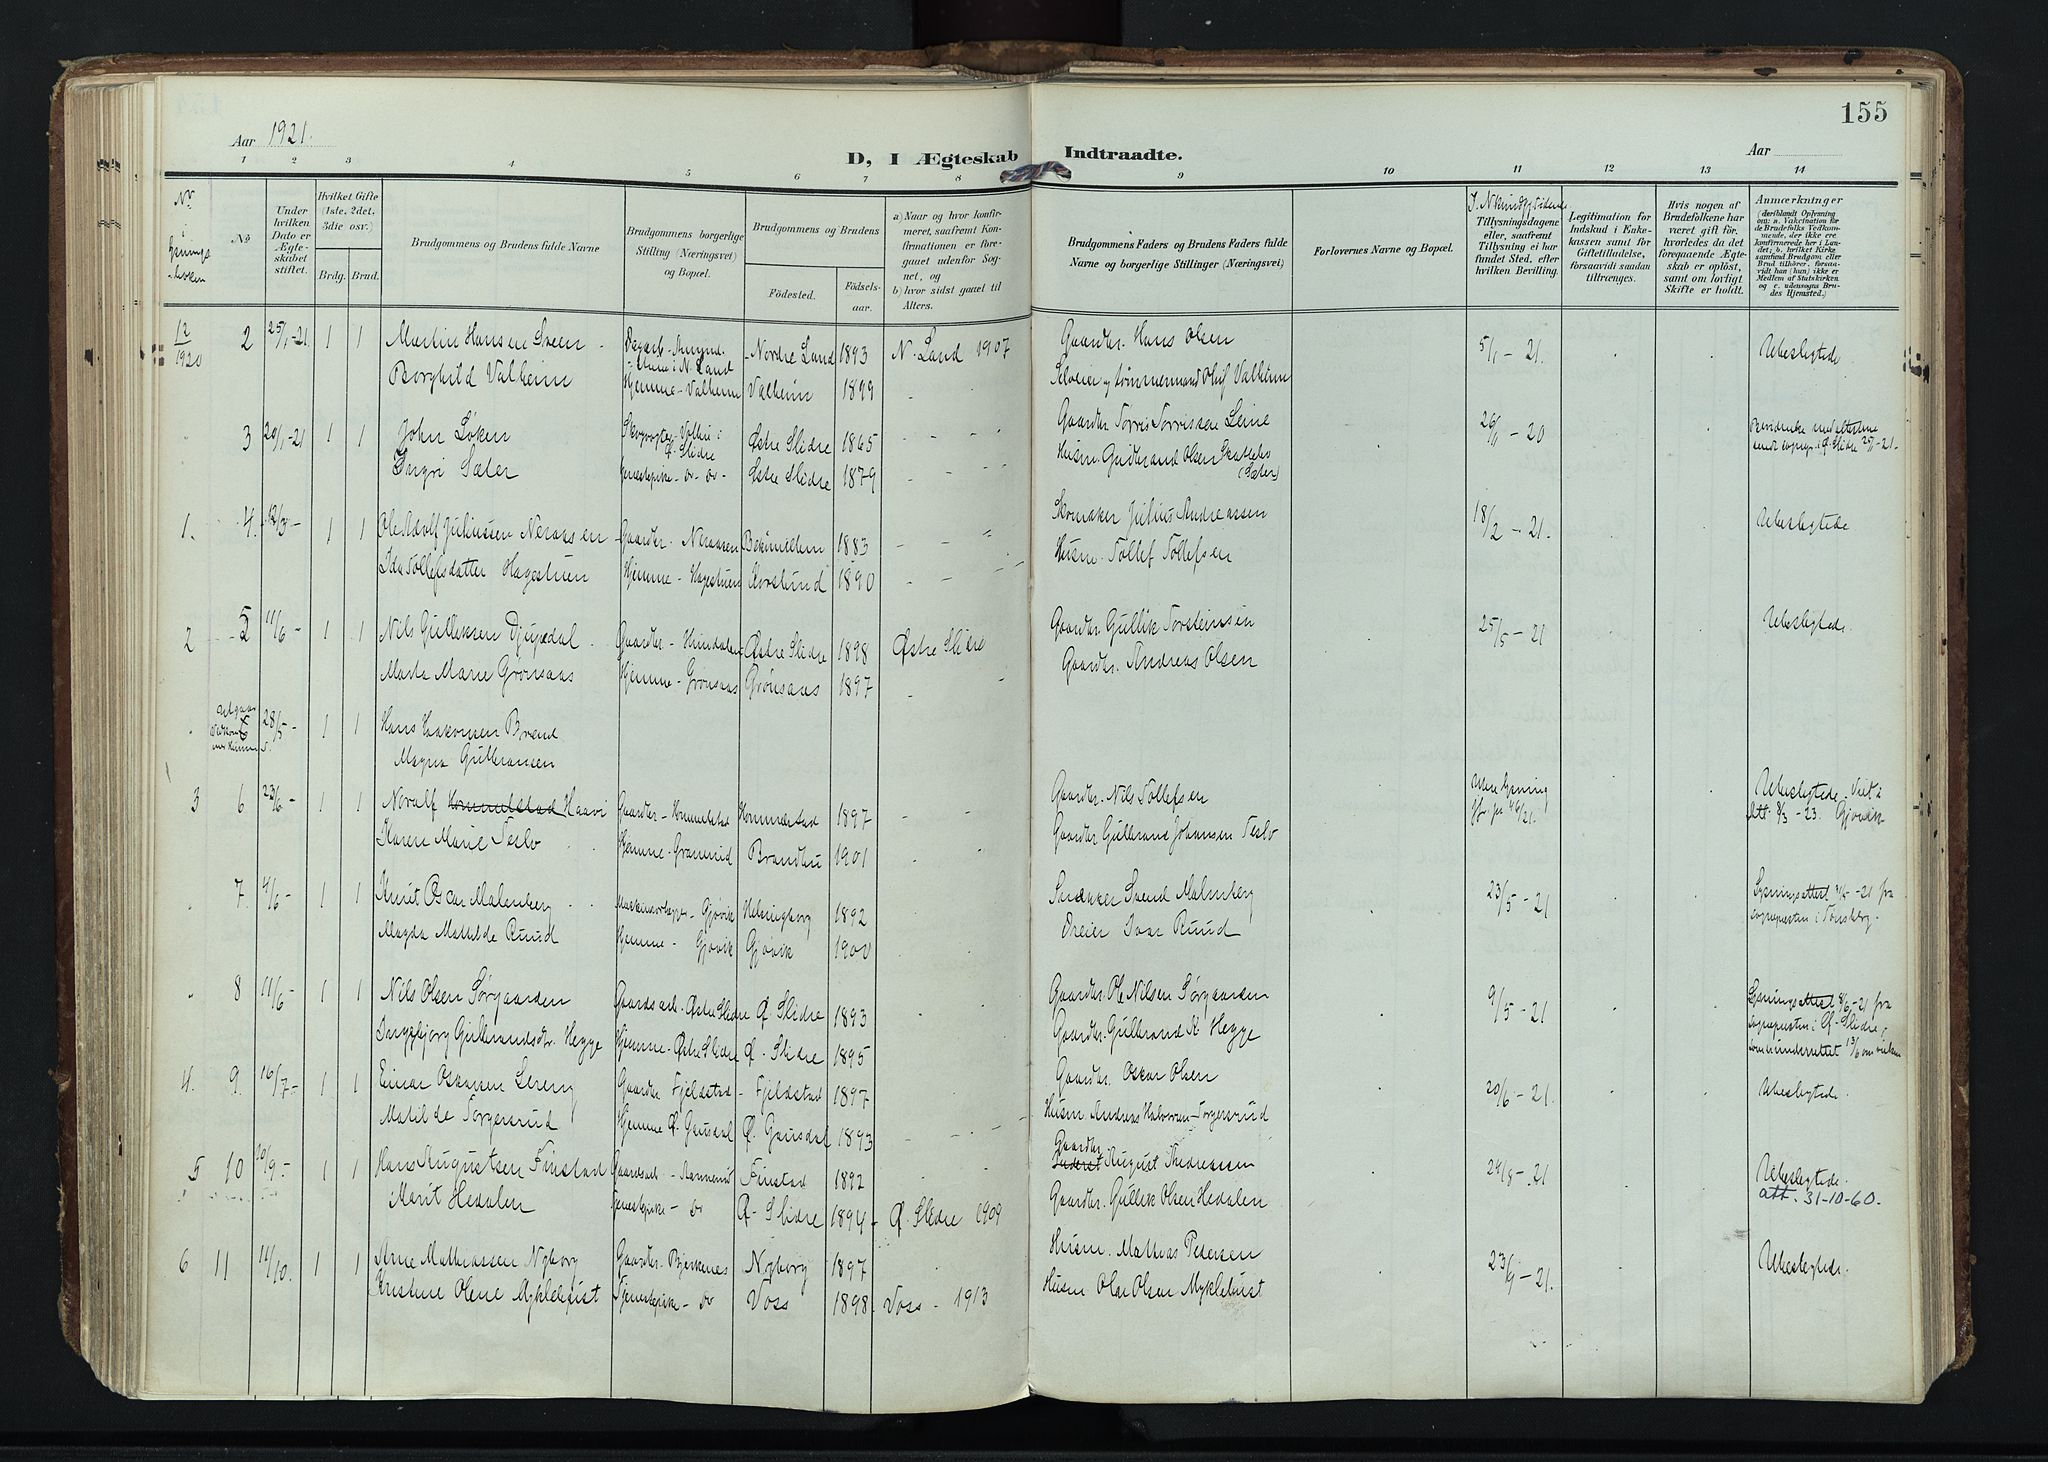 155
Aar 1921.
D, I Ægteskab Indtraadte.
Aar
1 2 3 4 5 6 7 8 9 10 11 12 13 14
Nr i lysningsboken
No
Under hvilken Dato er Ægteskabet stiftet.
Hvilket Gifte (1ste. 2det. 3die osv.)
Brdg. Brud.
Brudgommens og Brudens fulde Navne
Brudgommens borgerlige Stilling (Næringsvei) og Bopæl.
Brudgommens og Brudens
Fødested.
Fødselsaar.
a) Naar og hvor konfirmeret, saafremt Konfirmationen er foregaaet udenfor Sognet, og
b) hvor sidst gaaet til Alters.
Brudgommens Faders og Brudens Faders fulde Navne og borgerlige Stillinger (Næringsvei)
Forlovernes Navne og Bopæl.
Tillysningsdagene eller, saafremt Tillysning ei har fundet Sted, efter hvilken Bevilling.
Legitimation for Indskud i Enkekassen samt for Giftetilladelse, forsaavidt saadan tiltrænges.
Hvis nogen af Brudefolkene har været gift før, hvorledes da det foregaaende Ægteskab er opløst, samt om lovligt Skifte er holdt.
Anmærkninger
(deriblandt Oplysning om: a. Vakcination for de Brudefolks Vedkommende, der ikke ere konfirmerede her i Landet; b. hvilket Kirkesamfund Brudgom eller Brud tilhører, forsaavidt han (hun) ikke er Medlem af Statskirken og c. udensogns Brudes Hjemsted.)
12/1920 2 25/1-21 1 1 Martin Hansen Nordre Land 1893 N. Land 1907 Gaardbr. Hans Olsen 5/1-21. Ubeslegtede
Borghild Valheim Hjemme - Valheim Valheim 1899 Olaf Valheim
3 29/1-21 1 1 John Løken Østre Slidre 1865 Gaardbr. Torris Torrissen Leine 26/11-20
Ingri Sæter Østre Slidre 1879 Husm. Gudbrand Olsen (Sæter)
1. 4. 12/3- 1 1 Ole Adolf Juliussen Neraasen Gaardbr. Neraasen 1883 Skomaker Julius Andreassen 18/2-21. Ubeslegtede
Ida Tollefsdatter Hagestuen Hjemme - Hagestuen Korslund 1890 Husm. Tollef Tollefsen
2 5 11/6- 1 1 Nils Gulliksen Djupedal Gaardbr - Østre Slidre 1898 Østre Slidre Gaardbr. Gullik Torsteinsen 25/5-21 Ubeslegtede.
Marta Marie Grønsaas Hjemme - Grønsaas Grønsaas 1897 Gaardbr. Andreas Olsen
Utgaar 28/5- 1 1 Hans Haakonsen
Magna Gulbransen
3 6 23/6- 1 1 Noralf Haavi Gaardbr. Kommelstad 1897 Gaardbr. Nils Tollefsen Uten lysning Ubeslegtede. Att. 8/3-23.
Karen Marie Teslo Hjemme - Brandbu 1901 Gaardbr. Gulbrand Johansen Teslo
7. 4/6- 1 1 Knut Oscar Malmberg Gjøvik Helsingborg 1892 Malmberg 23/5-21 Lysningsattest 31/5-21 fra sogneprsten i Tønsberg.
Magda Mathilde Ruud Hjemme - Gjøvik Gjøvik 1900 Dreier Ivar Ruud
8 11/6- 1 1 Nils Olsen Sørgaarden Gaardsarb. Østre Slidre Ø. Slidre 1893 Gaardbr. Ole Nilsen Sørgaarden 9/5-21 Lysningsattest 8/6-21 fra sogneprsten i Ø. Slidre,
Ingebjørg Gulbrandsdtr. Hegge Hjemme - Østre Slidre Ø. Slidre 1895 Gaardbr. Gulbrand K. Hegge
4. 9. 16/7- 1 1 Einar Oskarsen Lereng Gaardbr. Fjeldstad - Fjeldstad 1897 Gaardbr. Oskar Olsen 20/6-21. Ubeslegtede
Matilde Torgersrud Hjemme Ø. Gausdal Ø. Gausdal 1893 Husm. Anders Halvorsen Torgersrud
5 10 10/9- 1 1 Hans Augustsen Finstad Gaardsarb. Finstad 1892 Gaardbr. August Andreassen 24/8-21 Ubeslegtede.
Marit Hedalen Tjenestepike - Do Ø. Slidre 1894 Ø. Slidre 1909 Gaardbr. Gullik Olsen Hedalen att. 31-10-60.
6 11 11/10. 1 1 Arne Mathiassen Nyborg Gaardbr. Bjerkenes Nyborg 1897 Husm. Mathias Pedersen 23/9-21. Ubeslegtede.
Kristine Olene Myklebust Tjenestepike - Do Voss 1898 Voss - 1913 Husm Olav Olsen Myklebust